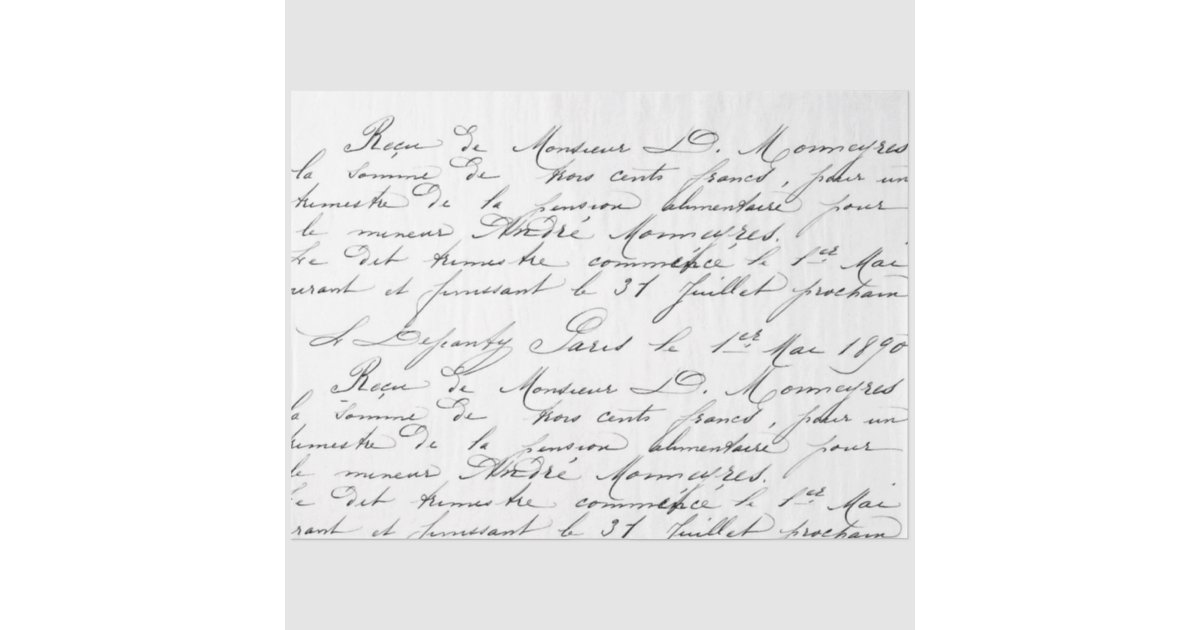 Reçu de Monsieur D. Monmeyres
la somme de trois cents francs, pour un
trimestre de la pension alimentaire pour
le mineur André Monmeyres.
Le dit trimestre commencé le 1er Mai
urant et finissant le 31 Juillet prochain
Paris le 1er Mai 1890
Reçu de Monsieur D. Monmeyres
la somme de trois cents francs, pour un
rimestre de la pension alimentaire pour
le mineur André Monmeyres.
e dit trimestre commencé le 1er Mai
rant et finissant le 31 Juillet prochain